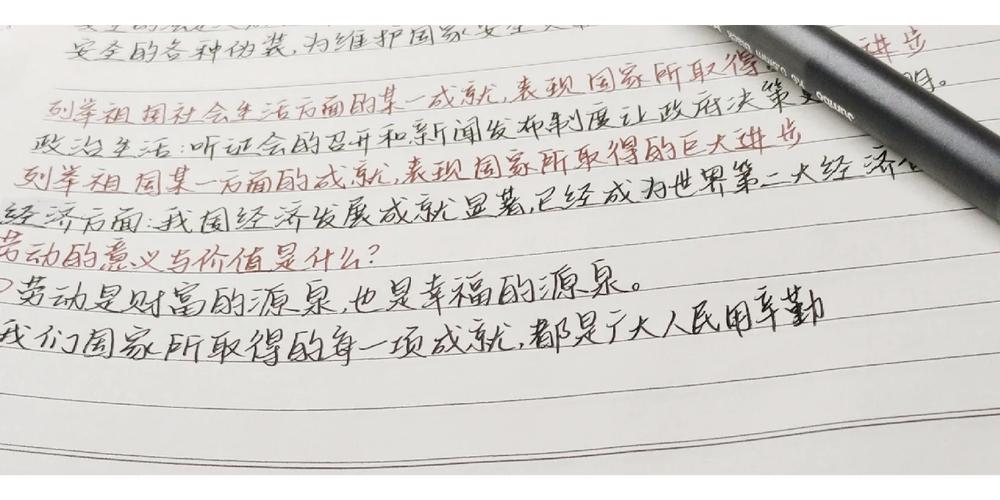 安全的各种伪装,为维护国家安全
列举祖国社会生活方面的某一成就,表现国家所取得 进步
政治生活:听证会的召开和新闻发布制度让政府决策 明。
列举祖国某一方面的成就,表现国家所取得的巨大进步
经济方面:我国经济发展成就显著,已经成为世界第二大经济
劳动的意义与价值是什么?
劳动是财富的源泉,也是幸福的源泉。
我们国家所取得的每一项成就,都是广大人民用辛勤